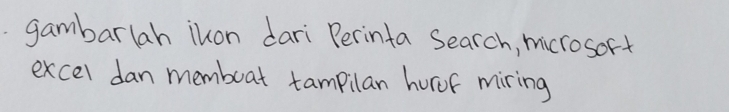 gambarlah ikon dari Perinta Search, microsoft
excel dan membuat tampilan huruf miring